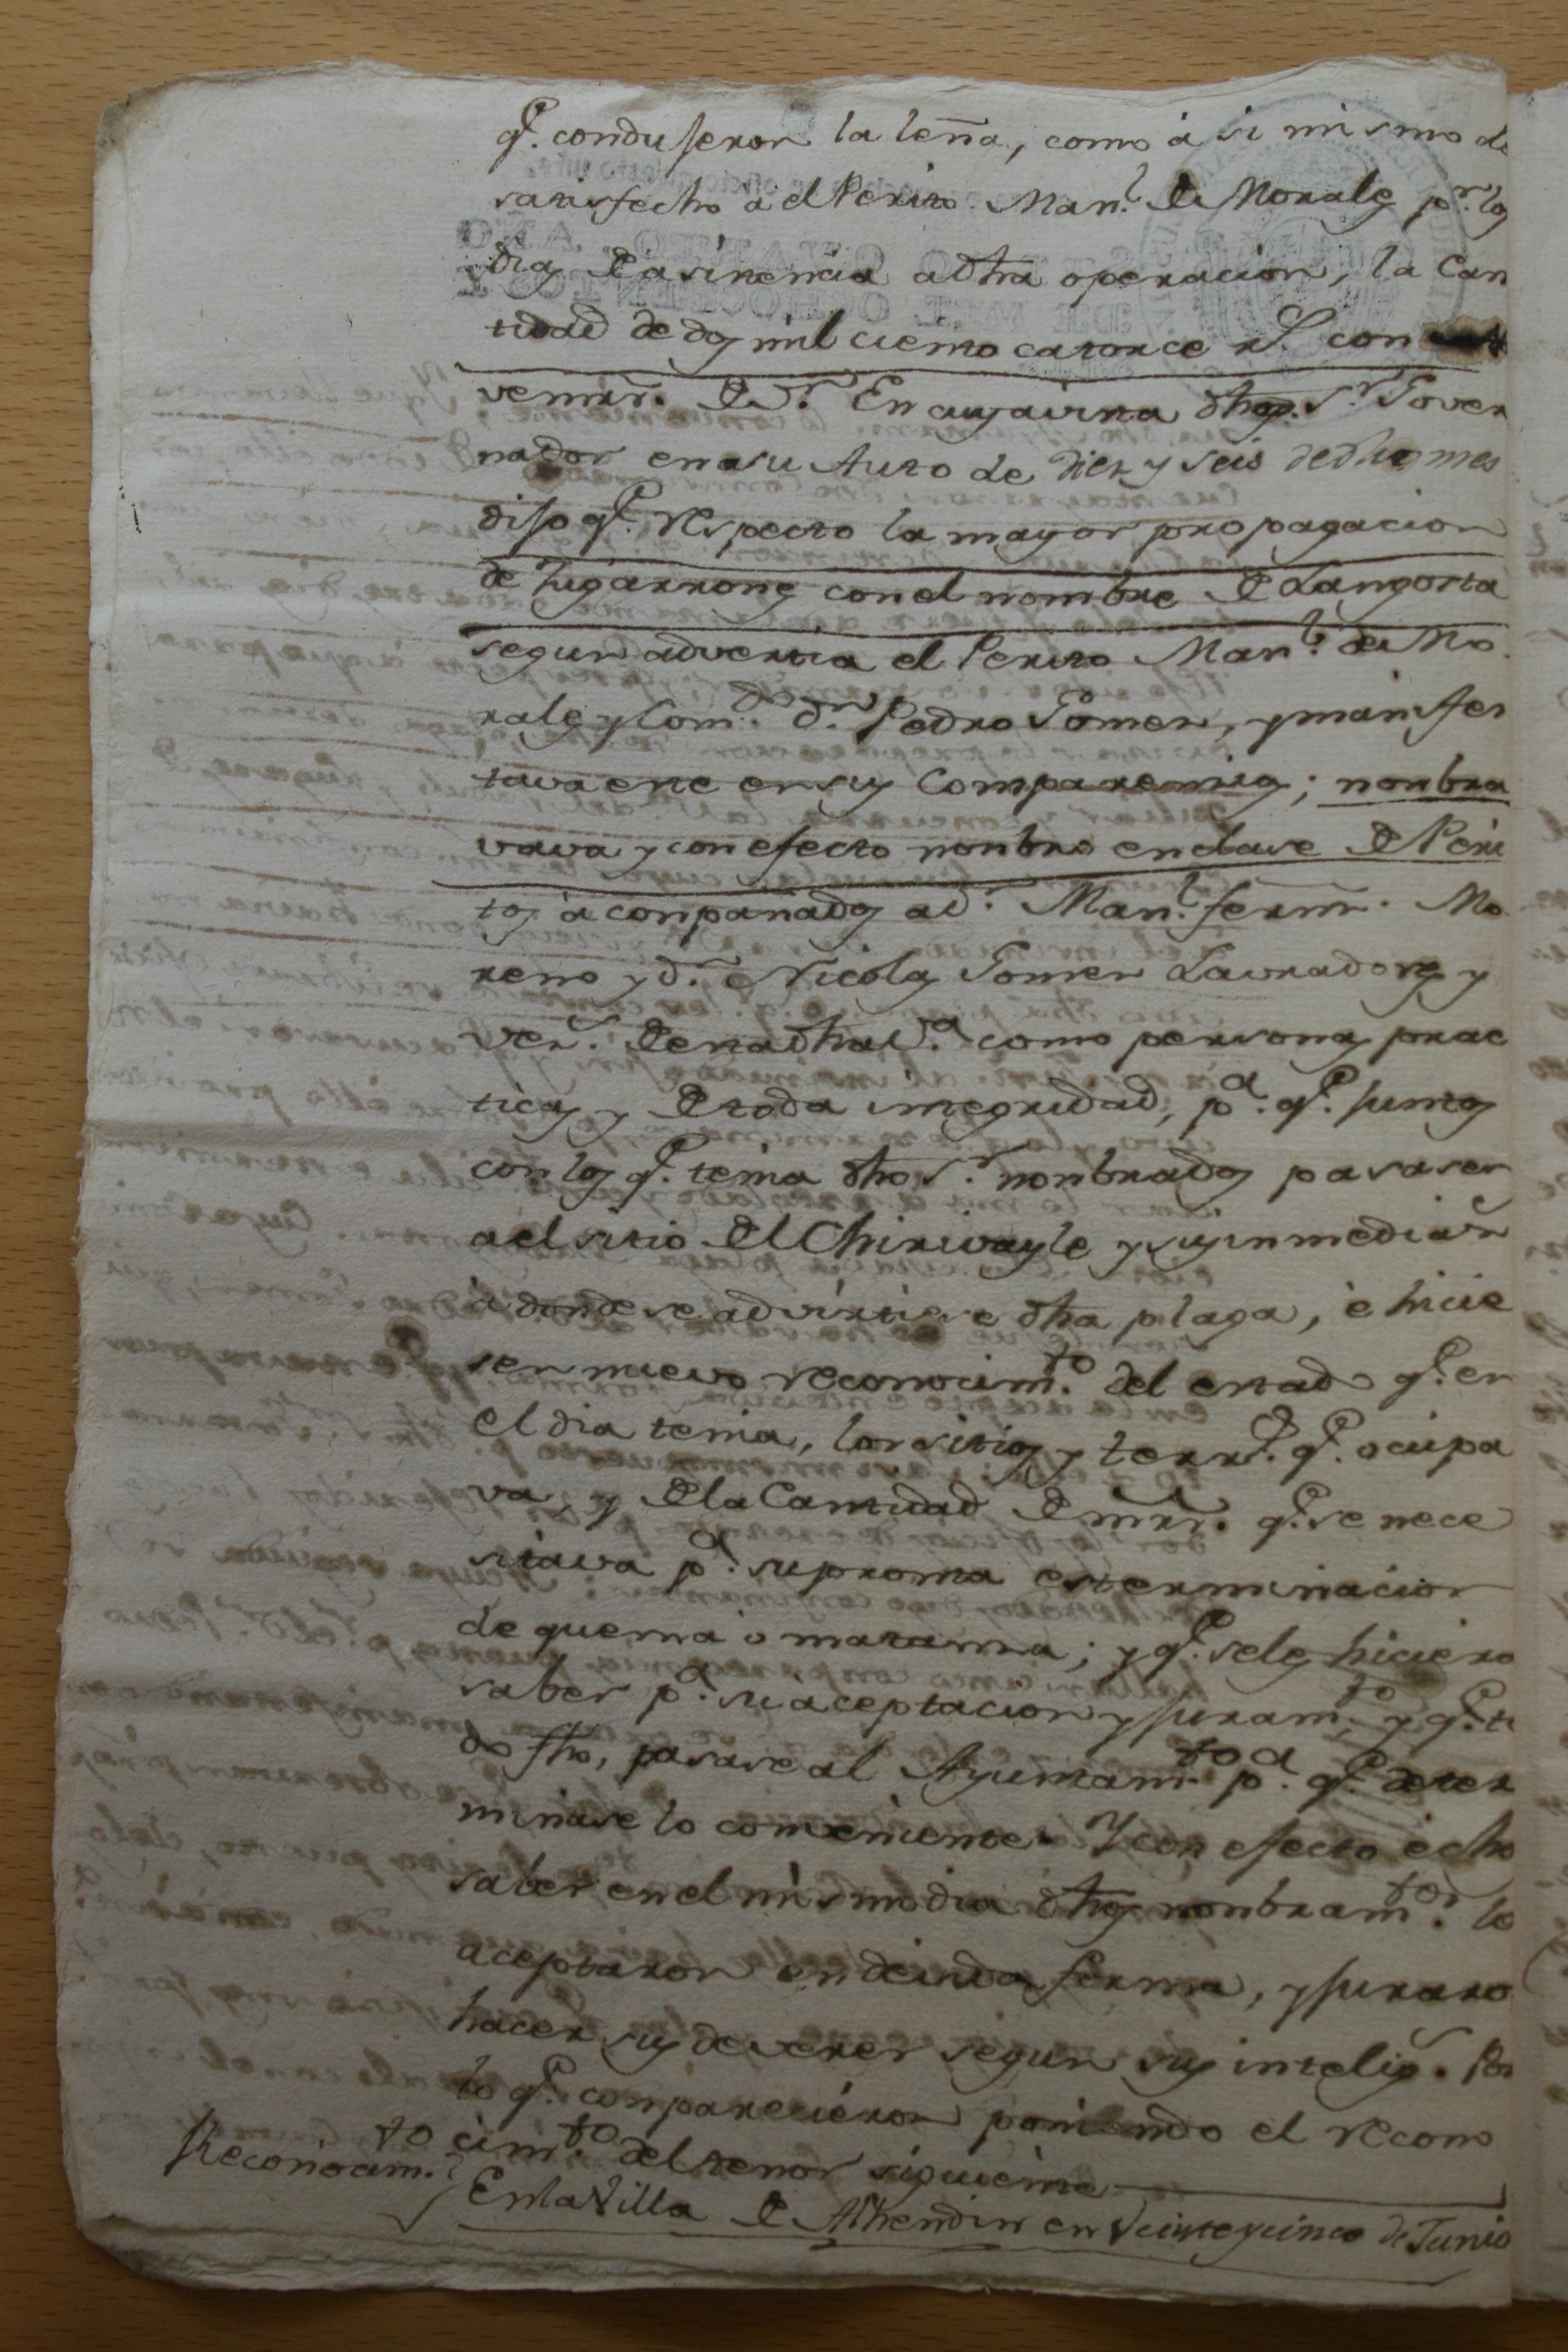 qe. condugeron la leña, como á si mismo de
satisfecho á el Perito Manl. de Morales pr. los
dias de asistencia a dha operacion, la Can
tidad de dos mil ciento catorce rs. con
vemrs. de vn. En cuya virta dho Sr. Gover
nador en a su Auto de Diez y seis de dho mes
dijo qe. respecto la mayor propagacion
de Zigarrones con el nombre de Langosta
segun advertia el Perito Manl. de Mo
rales y Comdo. dn. Pedro Gomez, y manifes
tavarene en sus Comparencias; nonbra
vava y con efecto nonbro en clase de Peri
tos aconpañados a dn. Manl. fernz. Mo
reno y dn. Nicolas Gomez Lavradores y
vezs. de esta dha va. como personas prac
ticas y de toda integridad, pa. qe. juntos
con los qe. tenia dho Sr. nonbrados pasasen
a el sitio del Chirivayle y sus inmedians
á donde se advirtiese dha plaga, é hicie
sen nuevo reconocimto. del estado qe. en
el dia tenia, los sitios y terrs. qe. ocupa
va, y de la Cantidad de mrs. qe. se nece
sitava pa. su pronta esterminacion
de quema o matanza; y qe. se les hiciero
saber pa. su aceptacion y juramto. y qe. to
do fho, pasase al Ayuntamto. pa. qe. deter
minase lo conveniente. Y con efecto echo
saber en el mismo dia dhos nonbramtos. lo
aceptaron en devida forma, y juraro
hacer sus deveres segun su intelign. Por
lo qe. conparecieron poniendo el recono
cimto. del tenor siguiente
Reconocimto. En la Villa de Alhendin en Veinte y cinco de Junio